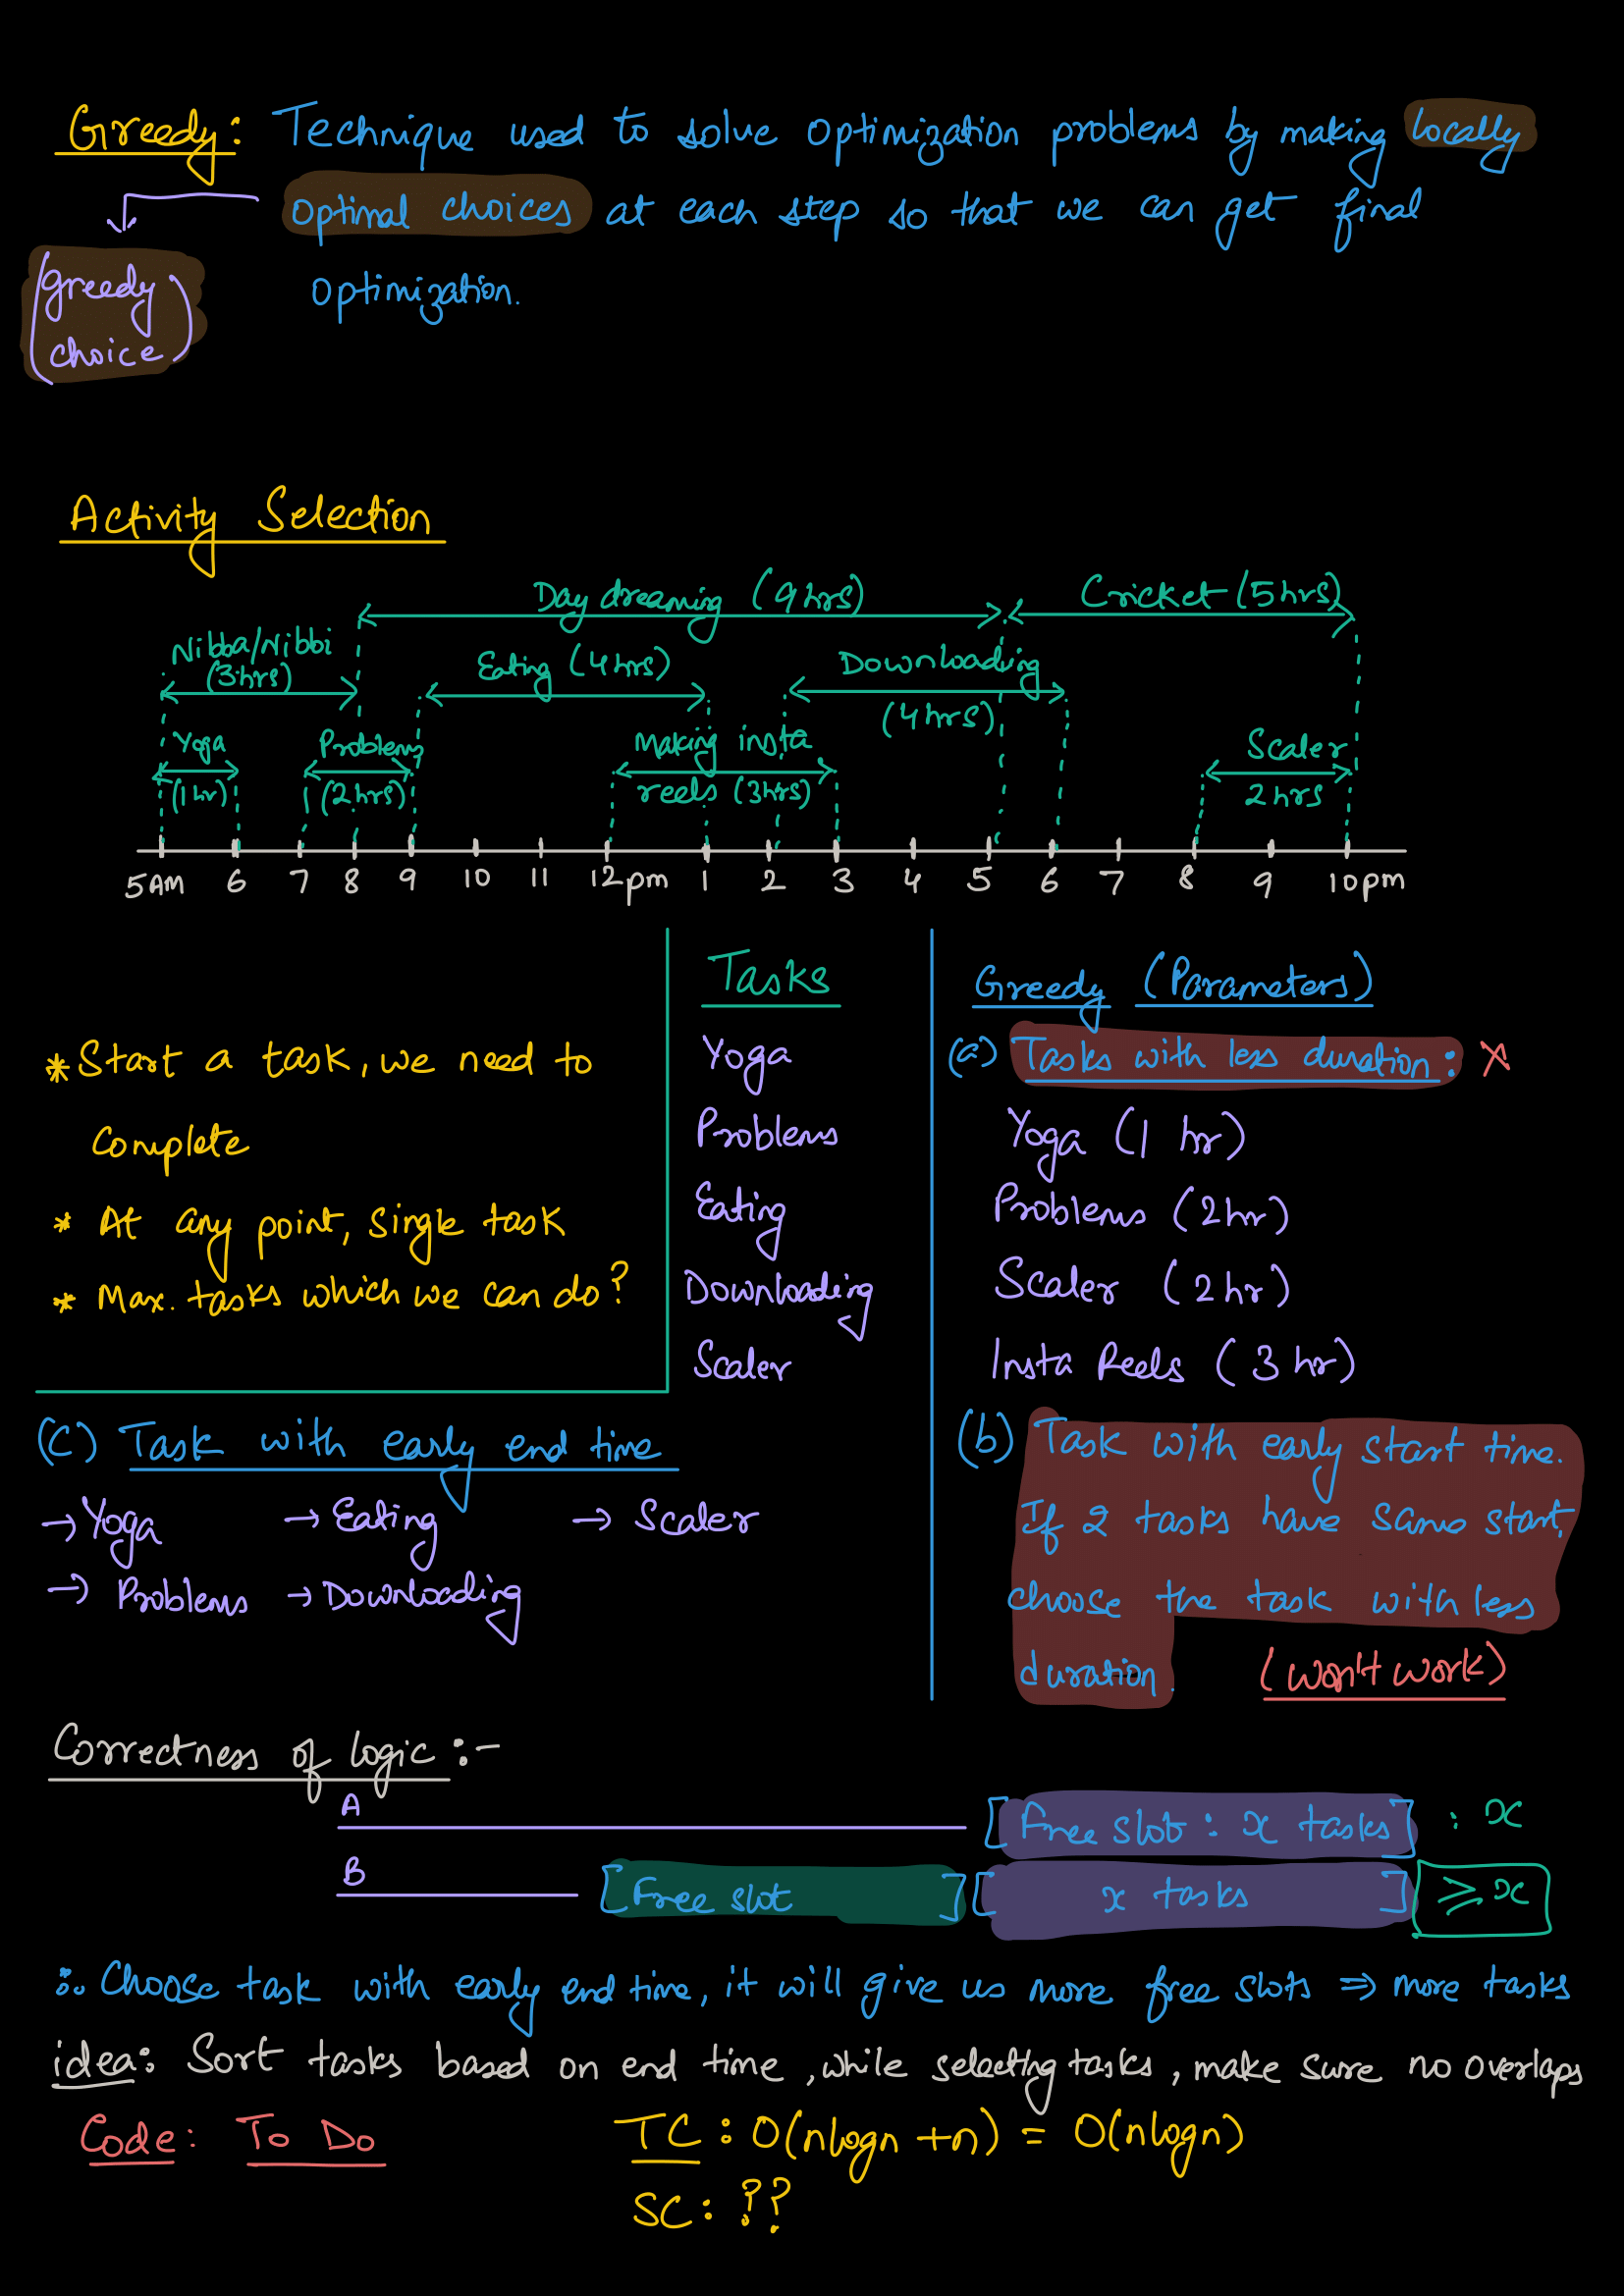 Greedy: Technique used to solve optimization problems by making locally
optimal choices at each step so that we can get final
optimization.
(greedy
choice)
Activity Selection
Day dreaming (9hrs)
Cricket (5hrs)
Nibba/Nibbi
(3hrs)
Eating (4hrs)
Downloading
(4hrs)
Yoga
(1hr)
Problems
(2hrs)
Making insta
reels (3hrs)
Scaler
2hrs
5AM 6 7 8 9 10 11 12pm 1 2 3 4 5 6 7 8 9 10pm
* Start a task, we need to
complete
* At any point, single task
* Max. tasks which we can do?
Tasks
Yoga
Problems
Eating
Downloading
Scaler
Greedy (Parameters)
(a) Tasks with less duration: X
Yoga (1 hr)
Problems (2hr)
Scaler (2hr)
Insta Reels (3hr)
(b) Task with early start time.
If 2 tasks have same start,
choose the task with less
duration. (won't work)
(C) Task with early end time
→ Yoga → Eating → Scaler
→ Problems → Downloading
Correctness of logic :-
A [Free slot : x tasks] : x
B [Free slot] [x tasks] ≥ x
∴ Choose task with early end time, it will give us more free slots ⇒ more tasks
idea: Sort tasks based on end time, while selecting tasks, make sure no overlaps
Code: To Do TC : O(nlogn +n) = O(nlogn)
SC: ??